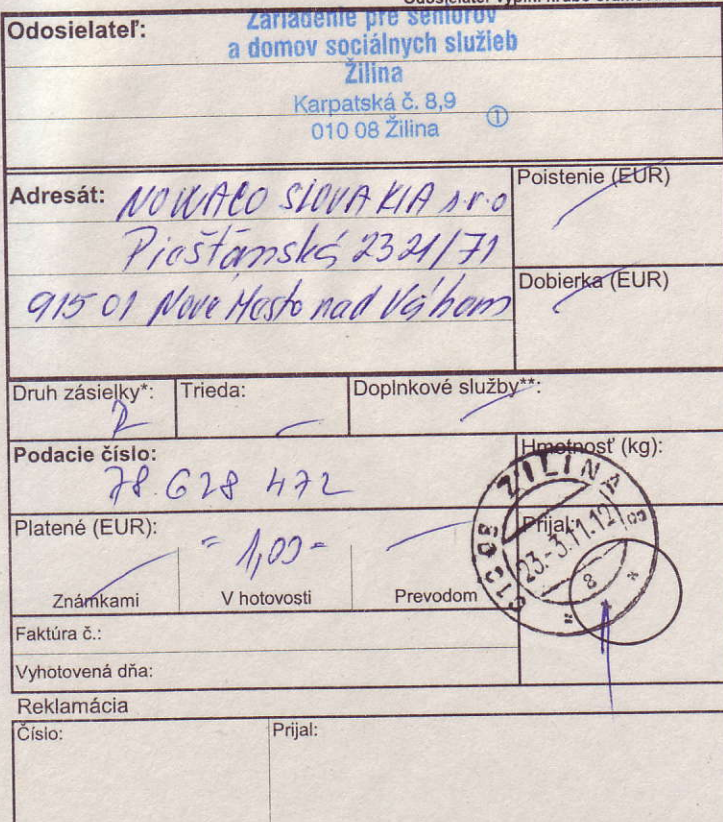 Odosielateľ:
Zariadenie pre seniorov
a domov sociálnych služieb
Žilina
Karpatská č. 8,9
010 08 Žilina
①
Adresát: NOWACO SLOVAKIA s.r.o
Piešťanská 2321/71
915 01 Nové Mesto nad Váhom
Poistenie (EUR)
Dobierka (EUR)
Druh zásielky*:
R
Trieda:
Doplnkové služby**:
Podacie číslo:
78 628 472
Hmotnosť (kg):
Platené (EUR):
= 1,00 -
Známkami
V hotovosti
Prevodom
Prijal:
ŽILINA
23.-3.11.12
8
Faktúra č.:
Vyhotovená dňa:
Reklamácia
Číslo:
Prijal: